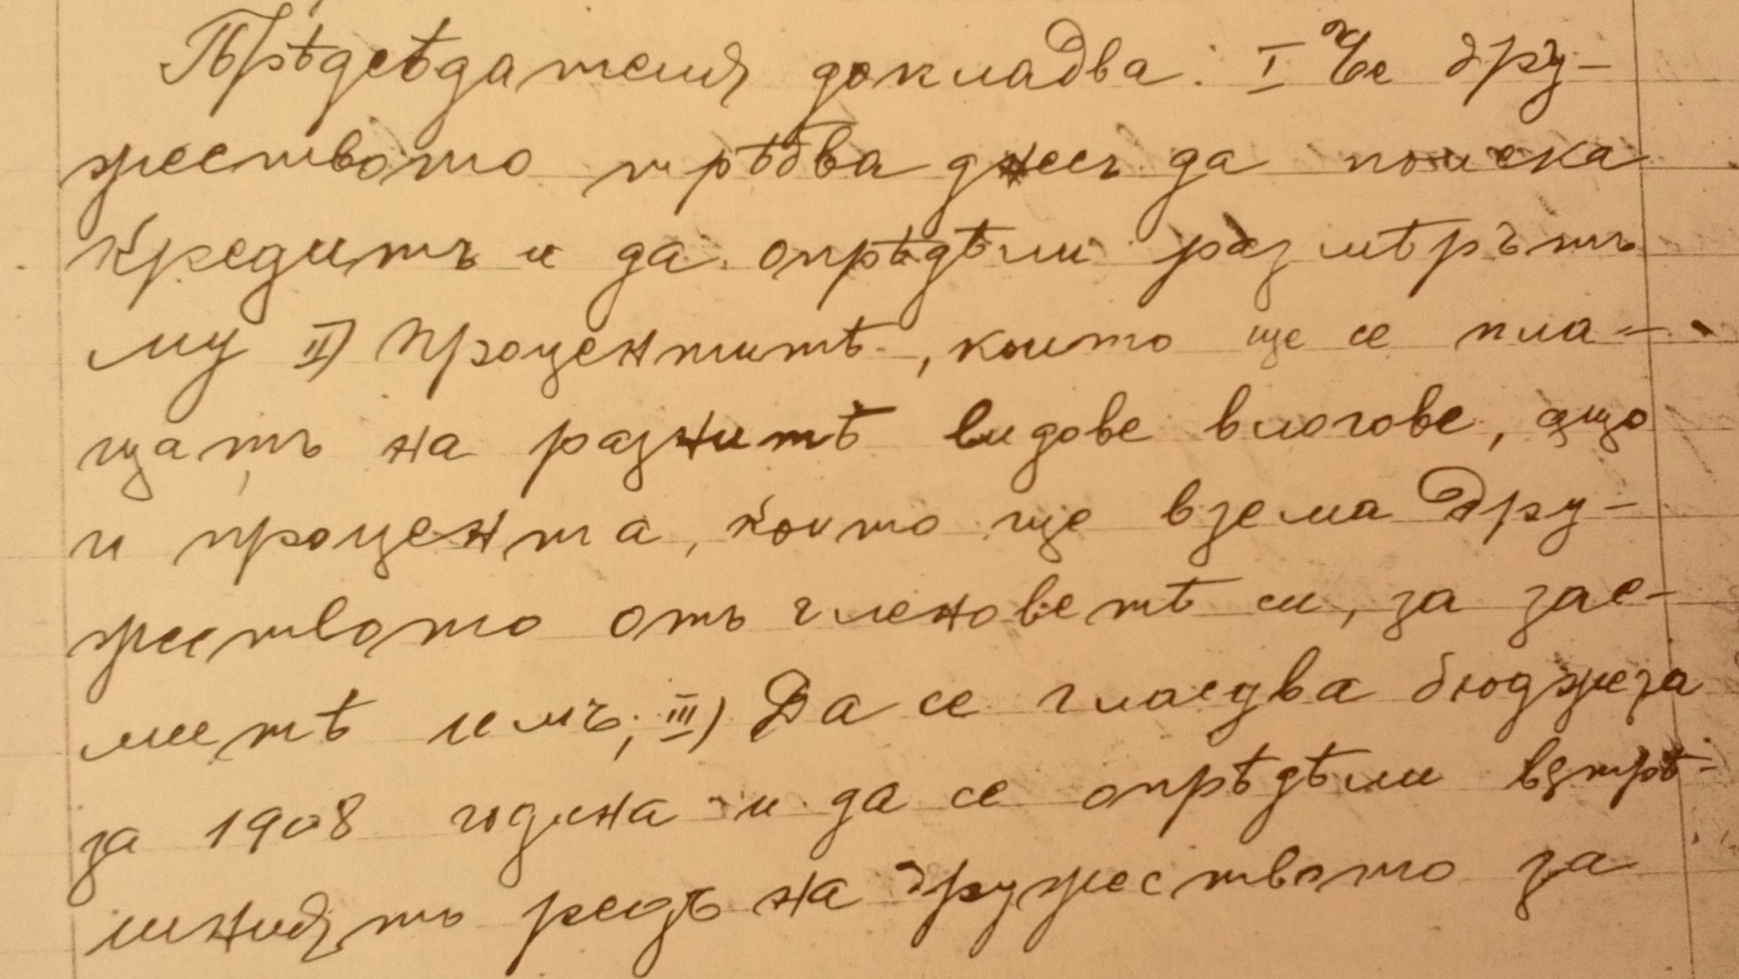 Прѣдсѣдателя докладва: I Че дру-
жеството трѣбва днесъ да поиска
кредитъ и да опрѣдѣли размѣрътъ
му II) Процентитѣ, които ще се пла-
щатъ на разнитѣ видове влогове, също
и процента, който ще взема Дру-
жеството отъ членоветѣ си, за зае-
митѣ имъ; III) Да се гласдва бюджета
за 1908 година и да се опрѣдѣли вѫтрѣ-
шниятъ редъ на дружеството за